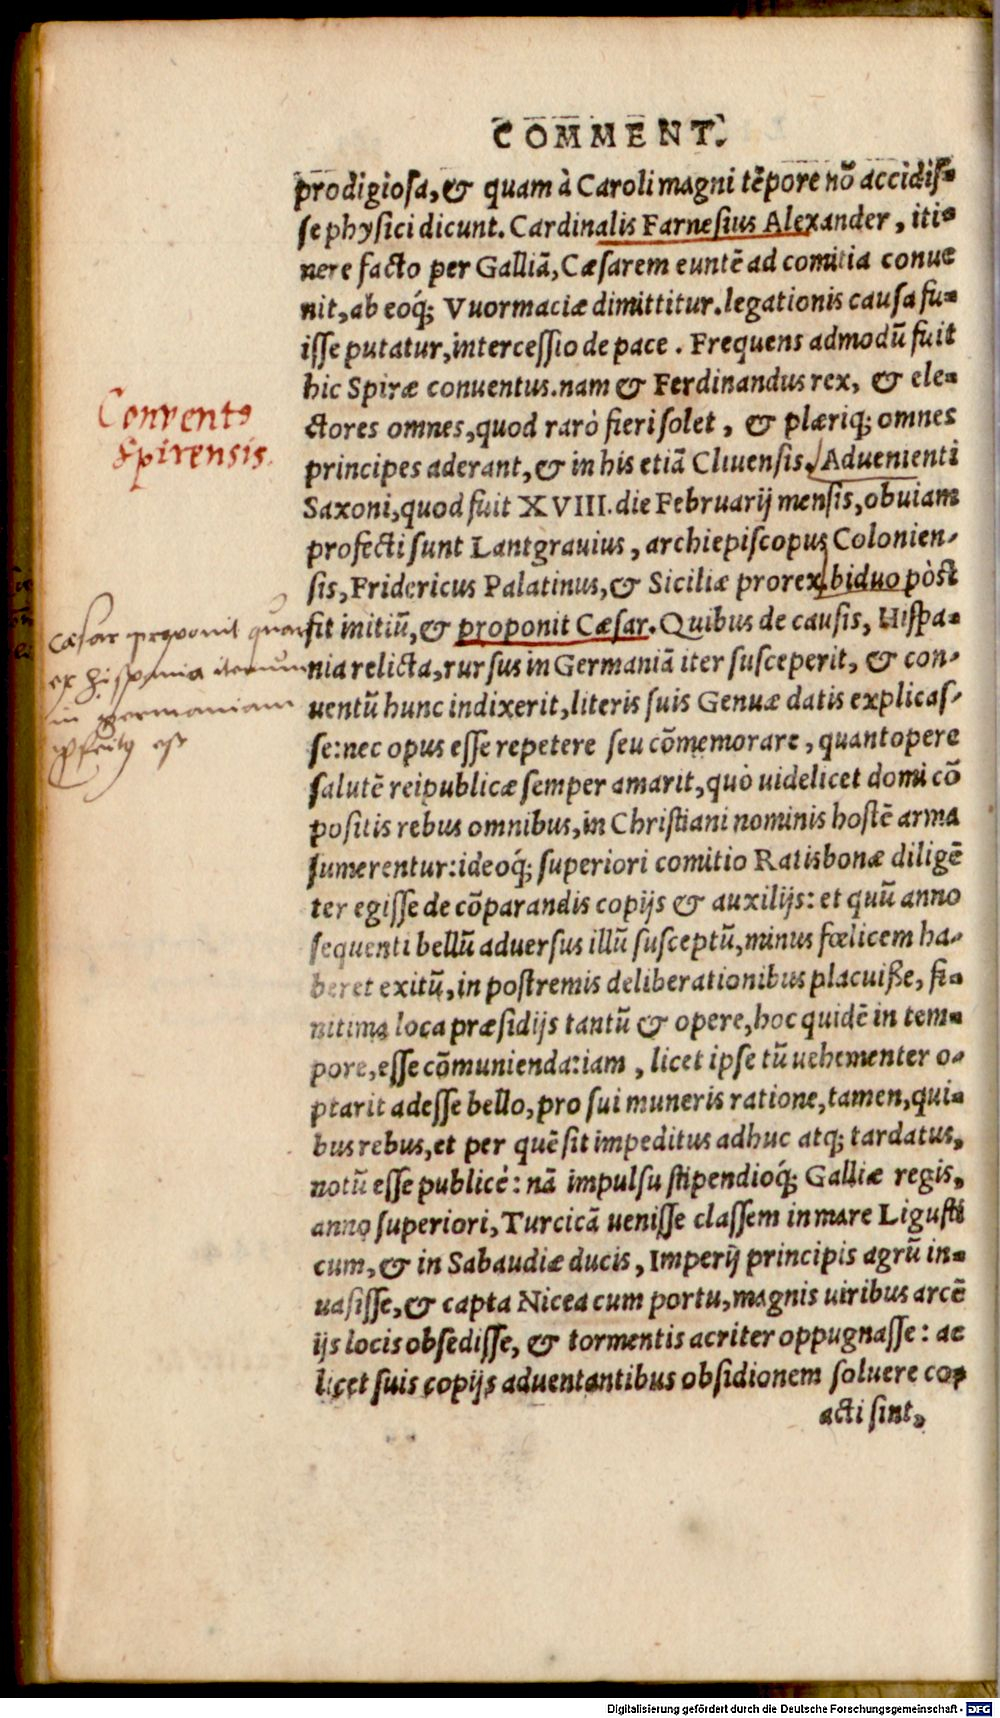 COMMENT.
prodigiosa, & quam à Caroli magni tẽpore nõ accidiſ-
ſe physici dicunt. Cardinalis Farneſius Alexander, iti-
nere facto per Galliã, Cæſarem euntẽ ad comitia conue
nit, ab eoq́; Vuormaciæ dimittitur. legationis cauſa fu-
iſſe putatur, interceſſio de pace. Frequens admodũ fuit
hic Spiræ conuentus. nam & Ferdinandus rex, & ele-
ctores omnes, quod rarò fieri ſolet, & plæriq; omnes
principes aderant, & in his etiã Cliuenſis. Aduenienti
Saxoni, quod fuit XVIII. die Februarij menſis, obuiam
profecti ſunt Lantgrauius, archiepiſcopus Colonien-
ſis, Fridericus Palatinus, & Siciliæ prorex, biduo pòst
fit initiũ, & proponit Cæſar. Quibus de cauſis, Hiſpa-
nia relicta, rurſus in Germaniã iter ſusceperit, & con-
uentũ hunc indixerit, literis ſuis Genuæ datis explicaſ-
ſe: nec opus eſſe repetere ſeu cõmemorare, quantopere
ſalutẽ reipublicæ ſemper amarit, quò uidelicet domi cõ
poſitis rebus omnibus, in Chriſtiani nominis hoſtẽ arma
ſumerentur: ideoq́; ſuperiori comitio Ratisbonæ diligẽ
ter egiſſe de cõparandis copijs & auxilijs: et quũ anno
ſequenti bellũ aduerſus illũ ſuſceptũ, minus fœlicem ha-
beret exitũ, in poſtremis deliberationibus placuiße, fi-
nitima loca præſidijs tantũ & opere, hoc quidẽ in tem-
pore, eſſe cõmunienda: iam, licet ipſe tũ uehementer o-
ptarit adeſſe bello, pro ſui muneris ratione, tamen, qui-
bus rebus, et per quẽ ſit impeditus adhuc atq; tardatus,
notũ eſſe publicè: nã impulſu ſtipendioq́; Galliæ regis,
anno ſuperiori, Turcicã ueniſſe claſſem in mare Liguſti
cum, & in Sabaudiæ ducis, Imperij principis agrũ in-
uaſiſſe, & capta Nicea cum portu, magnis uiribus arcẽ
ijs locis obſediſſe, & tormentis acriter oppugnaſſe: ac
licet ſuis copijs aduentantibus obſidionem ſoluere co-
acti ſint,
Conventꝰ
Spirensis.
Cæsar proponit quare
ex hispania iterum
in germaniam
Digitalisierung gefördert durch die Deutsche Forschungsgemeinschaft - DFG